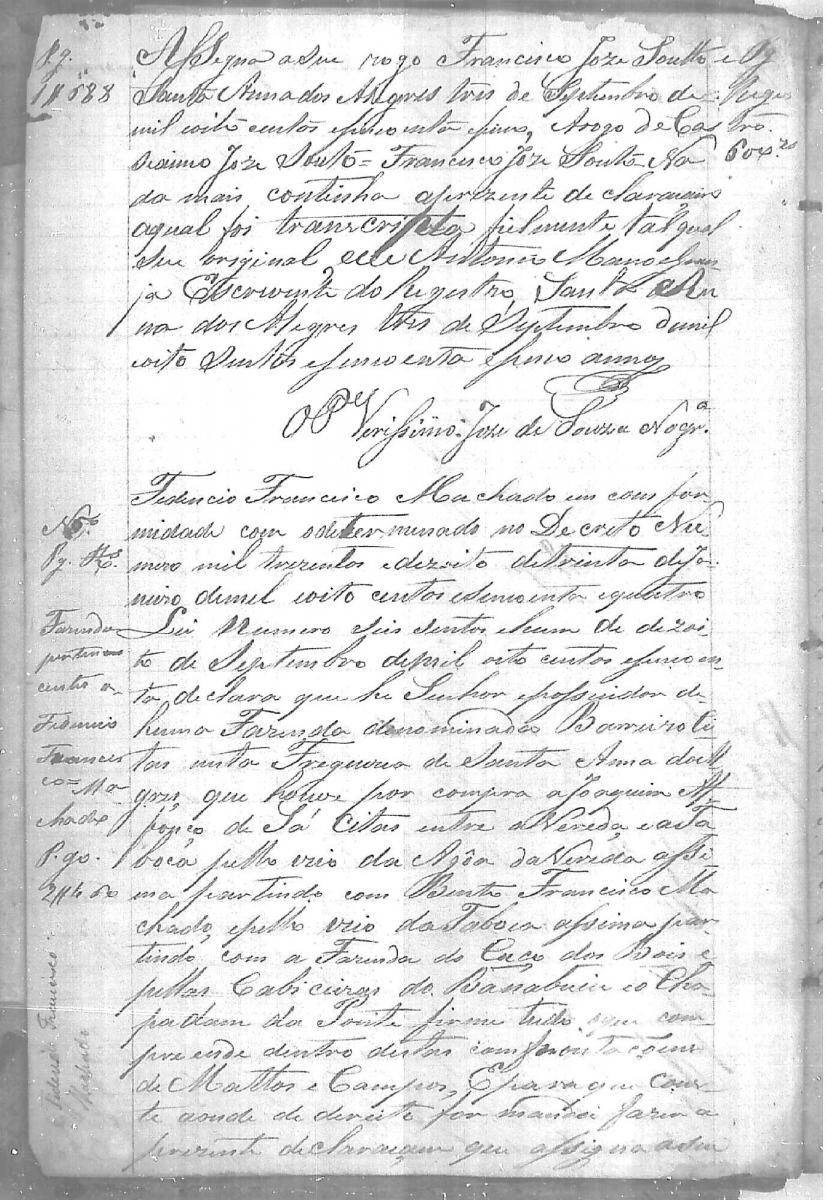 Pg.
1#588
Assigna a seu rogo Francisco Joze Soutto e
Santa Anna dos Alegres tres de Septembro de
mil oito centos e sincoenta e sinco, Arogo de Ca
Joze Souto = Francisco Joze Souto Na
da mais continha aprezente declaração
aqual foi transcripta fielmente tal qual
seu original eu Antonio Manoel
Escrevente do Registro, Santa An
na dos Alegres tres de Septembro demil
oito sentos e sincoenta e sinco annos
O Pe Verissimo Joze de Souza Nogra.
Fedencio Francisco Machado em comfor
midade com odeterminado no Decreto Nu
mero mil trezentos edezoito detrinta deJa
neiro demil oito centos esincoenta equatro
Lei Numero seis sentos ehum de dezoi
to de Septembro demil oito centos esincoen
ta, declara que he Senhor epossuidor de
huma Fazenda denominada Barreiro ci
tas nesta Freguezia de Santa Anna dos Al
gres, que houve por compra a Joaquim Af
fonço de Sá Citas entre a Vereda e a Ta
boca pello veio da Agôa da Vereda assi
ma partindo com Bento Francisco Ma
chado, epello veio da Taboca assima par
tindo com a Fazenda do Caço dos Bois e
pellas Cabiceiras do e o Cha
padam da Ponte firme tudo que com
preende dentro destas comfrontaçoens
de Mattos e Campos, Epara que cons
te aonde de direito for mandei fazer a
prezente declaraçam que assigna aseu
Pg.
Fazenda
perten
cente a
Fedencio
Francis
co = Ma
chado
P. go.
2#450
Fedencio Francisco
Machado